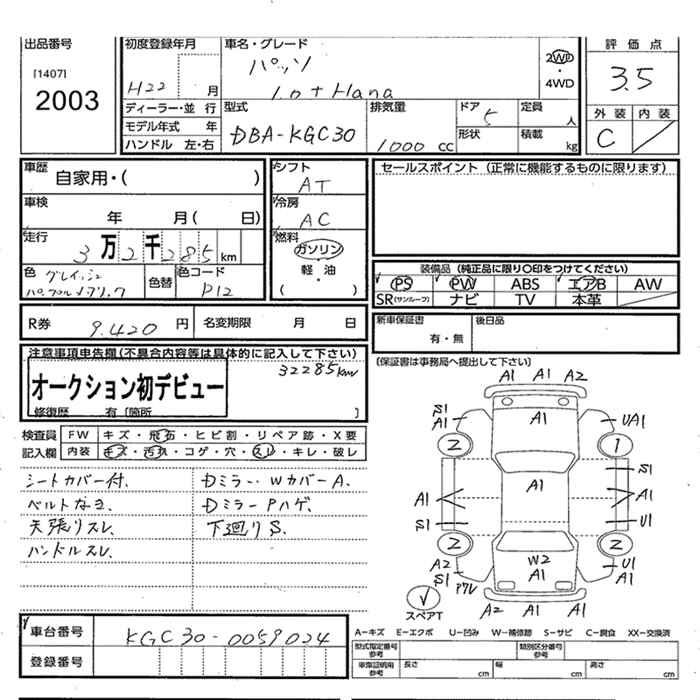 出品番号
[1407]
2003
初度登録年月
H22 月
車名・グレード
パッソ
1.0 + Hana
2WD
・
4WD
評価点
3.5
外装 内装
C
ディーラー・並行
モデル年式 年
ハンドル 左・右
型式
DBA-KGC30
排気量
1000 cc
ドア 5
形状
定員
人
積載
kg
車歴
自家用・( )
車検
年 月( 日)
走行
3万2千285km
色 グレイッシュ
パープルマイカ
色替
色コード
P12
シフト
AT
冷房
AC
燃料
ガソリン
・
軽・油
( )
セールスポイント (正常に機能するものに限ります)
装備品 (純正品に限り○印をつけてください)
PS PW ABS エアB AW
SR(サンルーフ) ナビ TV 本革
R券 9,420 円 名変期限 月 日
新車保証書
有・無
後日品
(保証書は事務局へ提出して下さい)
注意事項申告欄(不具合内容等は具体的に記入して下さい)
32285km
オークション初デビュー
修復歴 有〔箇所 〕
検査員 FW キズ・飛石・ヒビ割・リペア跡・X要
記入欄 内装 キズ・汚れ・コゲ・穴・スレ・キレ・破レ
シートカバー付、 DミラーWカバーA、
ベルトなヨ、 DミラーPハゲ、
天張りスレ、 下廻りS、
ハンドルスレ、
A1 A1 A2
S1
A1
A1
UA1
2 1
S1
A1
A1
A1
S1
U1
2 2
A2
S1
W2
A1
U1
A1
スペアT
A2 A1 A1
車台番号 KGC30-0059024
登録番号
A-キズ E-エクボ U-凹み W-補修跡 S-サビ C-腐食 XX-交換済
型式指定番号
参考
類別区分番号
参考
車庫証明用
参考
長さ cm 幅 cm 高さ cm